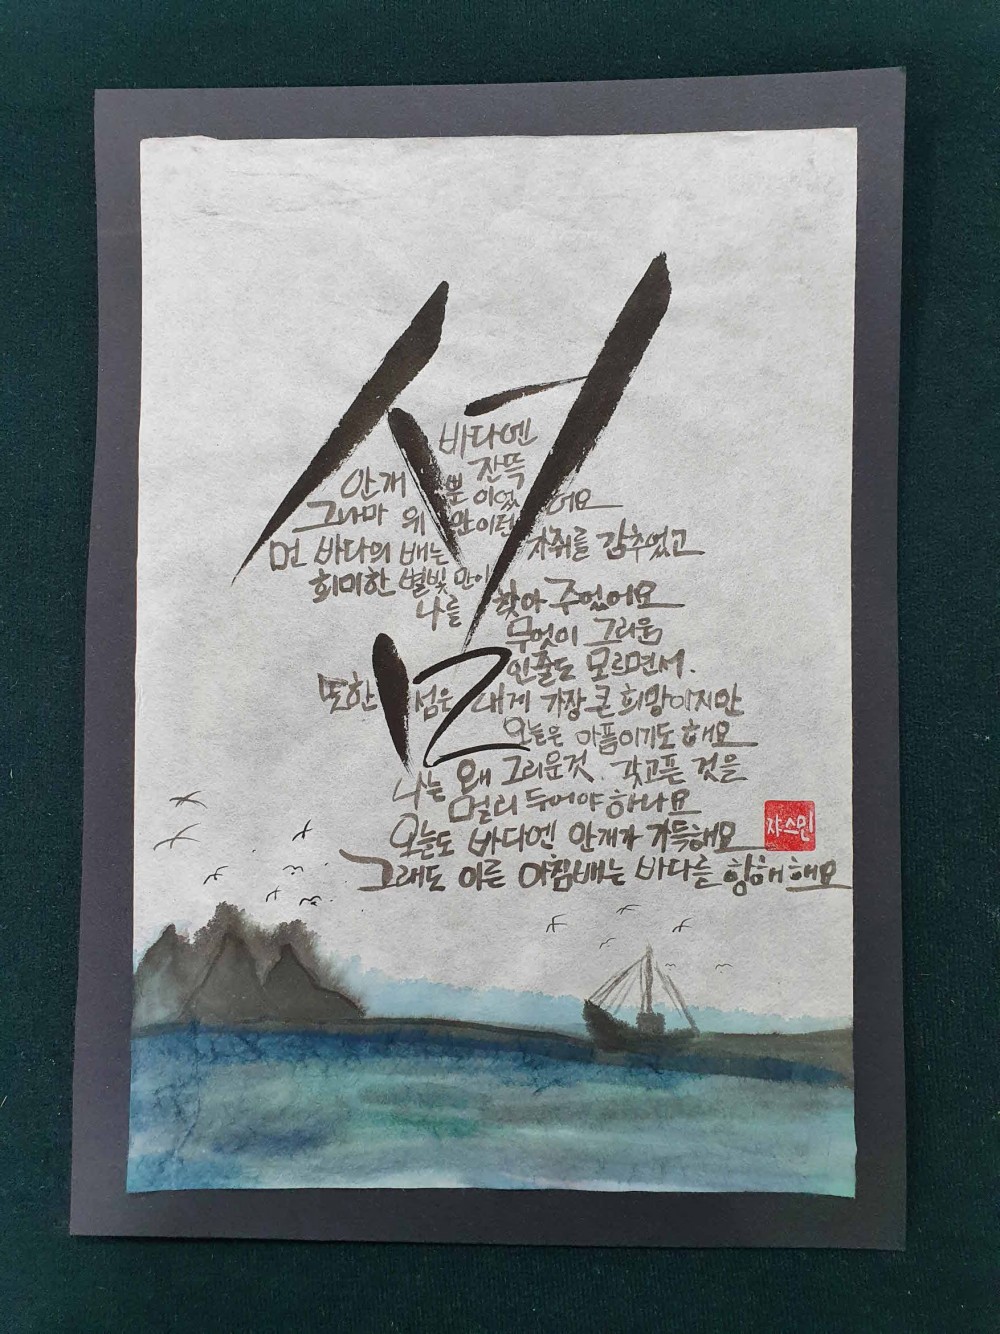 섬
바다엔
안개 잔뜩
뿐 이었어요
그나마 위안이던
먼 바다의 배는 자취를 감추었고
희미한 별빛만이
나를 찾아 주었어요
무엇이 그리움
인줄도 모르면서.
또한 섬은 내게 가장 큰 희망이지만
오늘은 아픔이기도 해요
나는 왜 그리운것. 갖고픈 것을
멀리 두어야 하나요
오늘도 바다엔 안개가 가득해요
그래도 이른 아침배는 바다를 항해해요
쟈스민